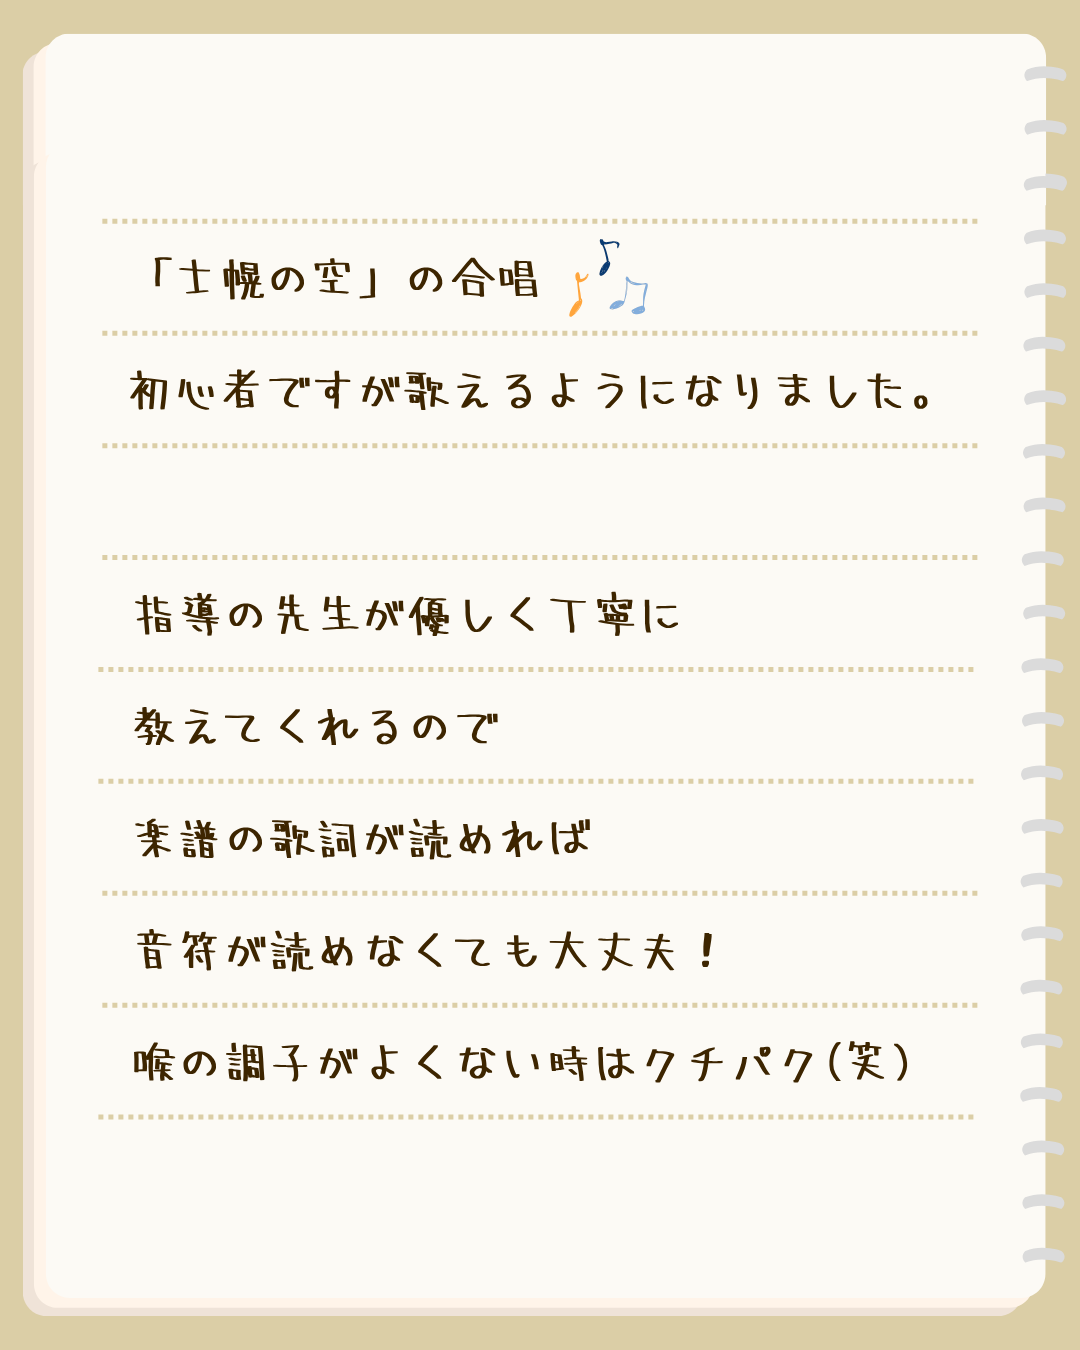 「士幌の空」の合唱
初心者ですが歌えるようになりました。
指導の先生が優しく丁寧に
教えてくれるので
楽譜の歌詞が読めれば
音符が読めなくても大丈夫！
喉の調子がよくない時はクチパク(笑)